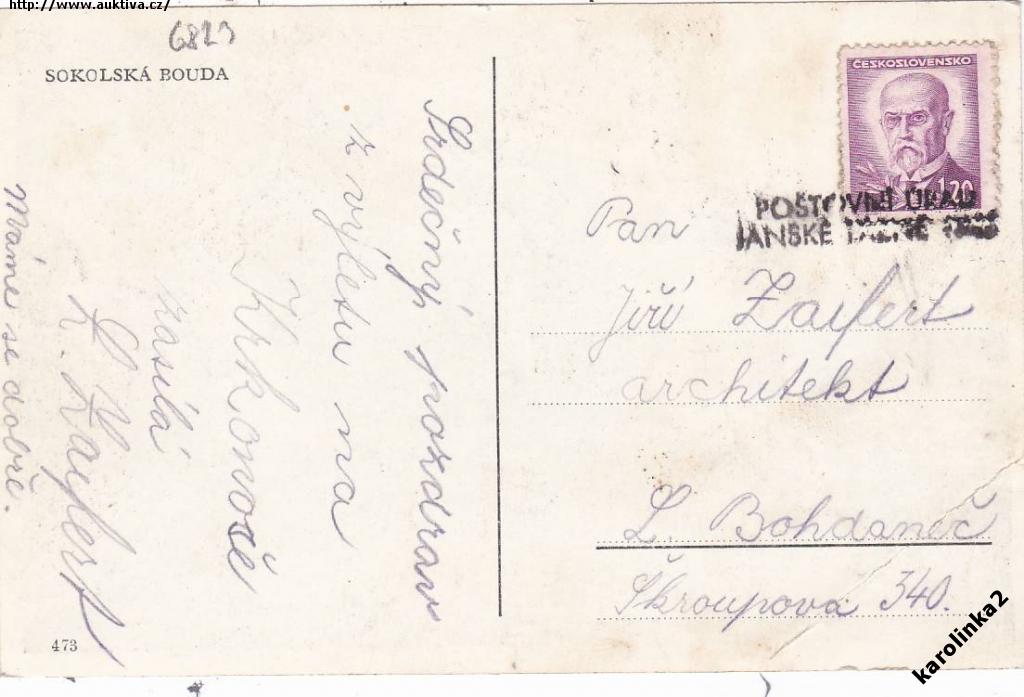 http://www.auktiva.cz/
6823
SOKOLSKÁ BOUDA
Srdečný pozdrav
z výletu na
Krkonoše
zasílá
Máme se dobře.
473
ČESKOSLOVENSKO
1.20
POŠTOVNÍ ÚŘAD
JANSKÉ LÁZNĚ
Pan
Jiří Zaifert
architekt
L. Bohdaneč
Škroupova 340.
karolinka2